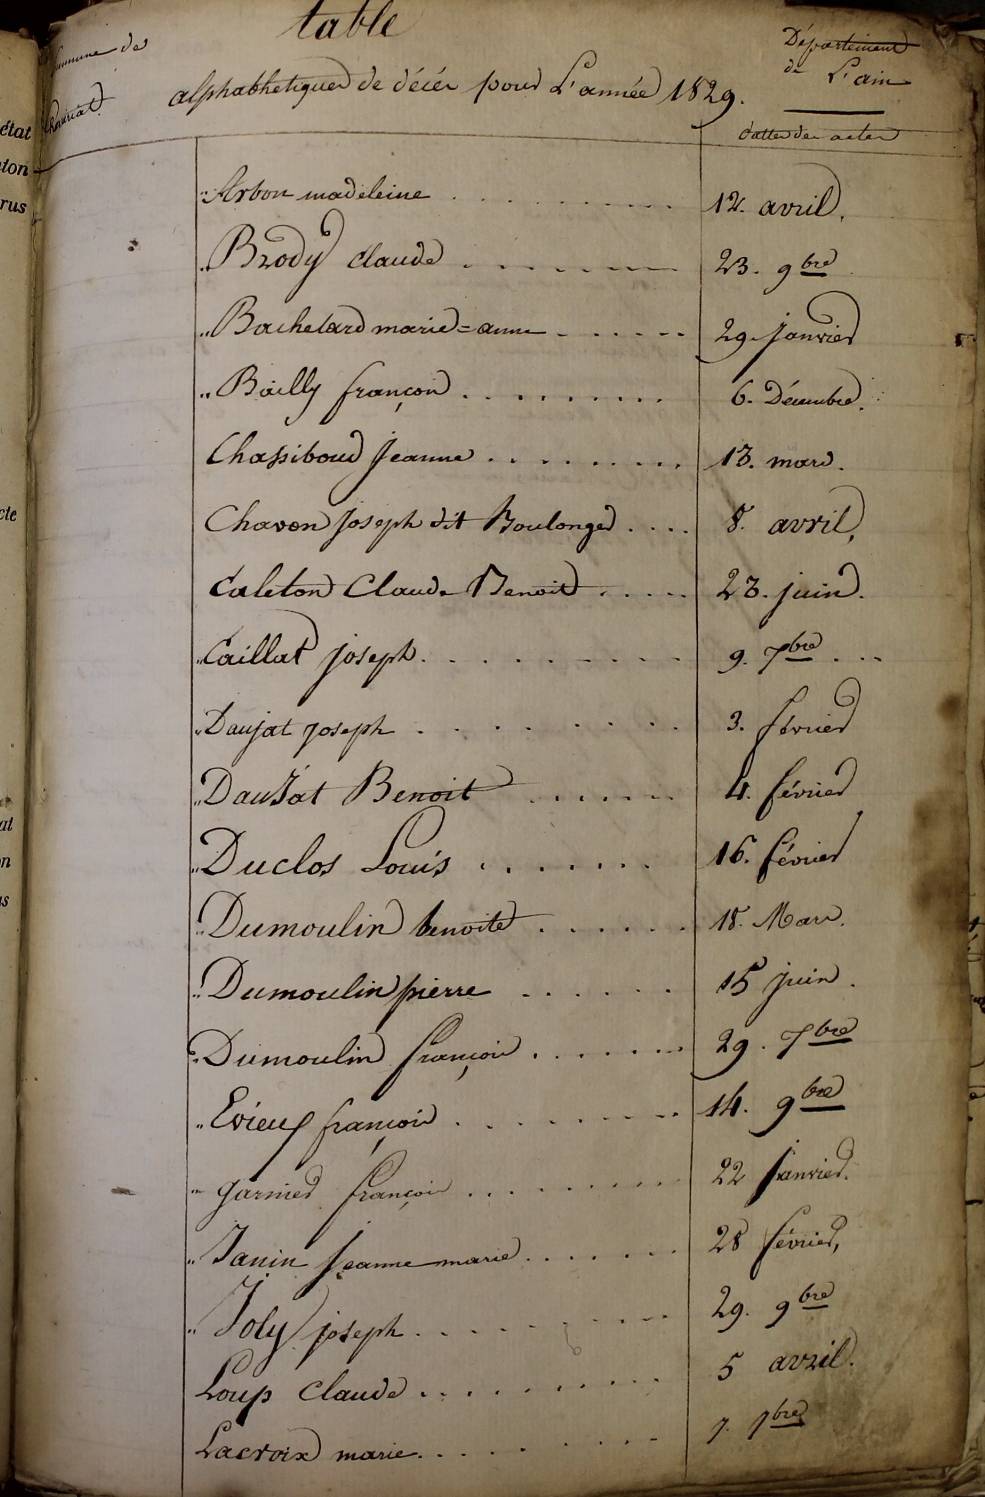 table
Commune de
Département
de L'ain
alphabhetiques de décés pour L'année 1829.
dattes des actes
Arbon madeleine . . . . . . . . . 12. avril.
Brody Claude . . . . . . . 23. 9bre
Bachelard marie=anne . . . . . . 29. janvier
Bailly françois . . . . . . . . . 6. Décembre.
Chassiboud jeanne . . . . . . . . 13. mars.
Chavon joseph dit Boulonger . . . . 8. avril,
Caleton Claude Benoit . . . . . 23. juin.
Caillat joseph . . . . . . . . . . 9. 7bre . . .
Daujat joseph . . . . . . . . . 3. février
Daujat Benoit . . . . . . . 4. février
Duclos Louis . . . . . . . 16. février
Dumoulin benoite . . . . . . 18. Mars.
Dumoulin pierre . . . . . . 15 juin .
Dumoulin françois . . . . . . . 29. 7bre
Evieux françois . . . . . . . . 14. 9bre
garnier françois . . . . . . . . 22 janvier.
Janin jeanne marie . . . . . . . 28 février,
Joly joseph . . . . . . . . . 29. 9bre
Loup Claude . . . . . . . . . . 5 avril.
Lacroix marie . . . . . . . . . 7. 7bre
état
ton
rus
cte
at
on
us